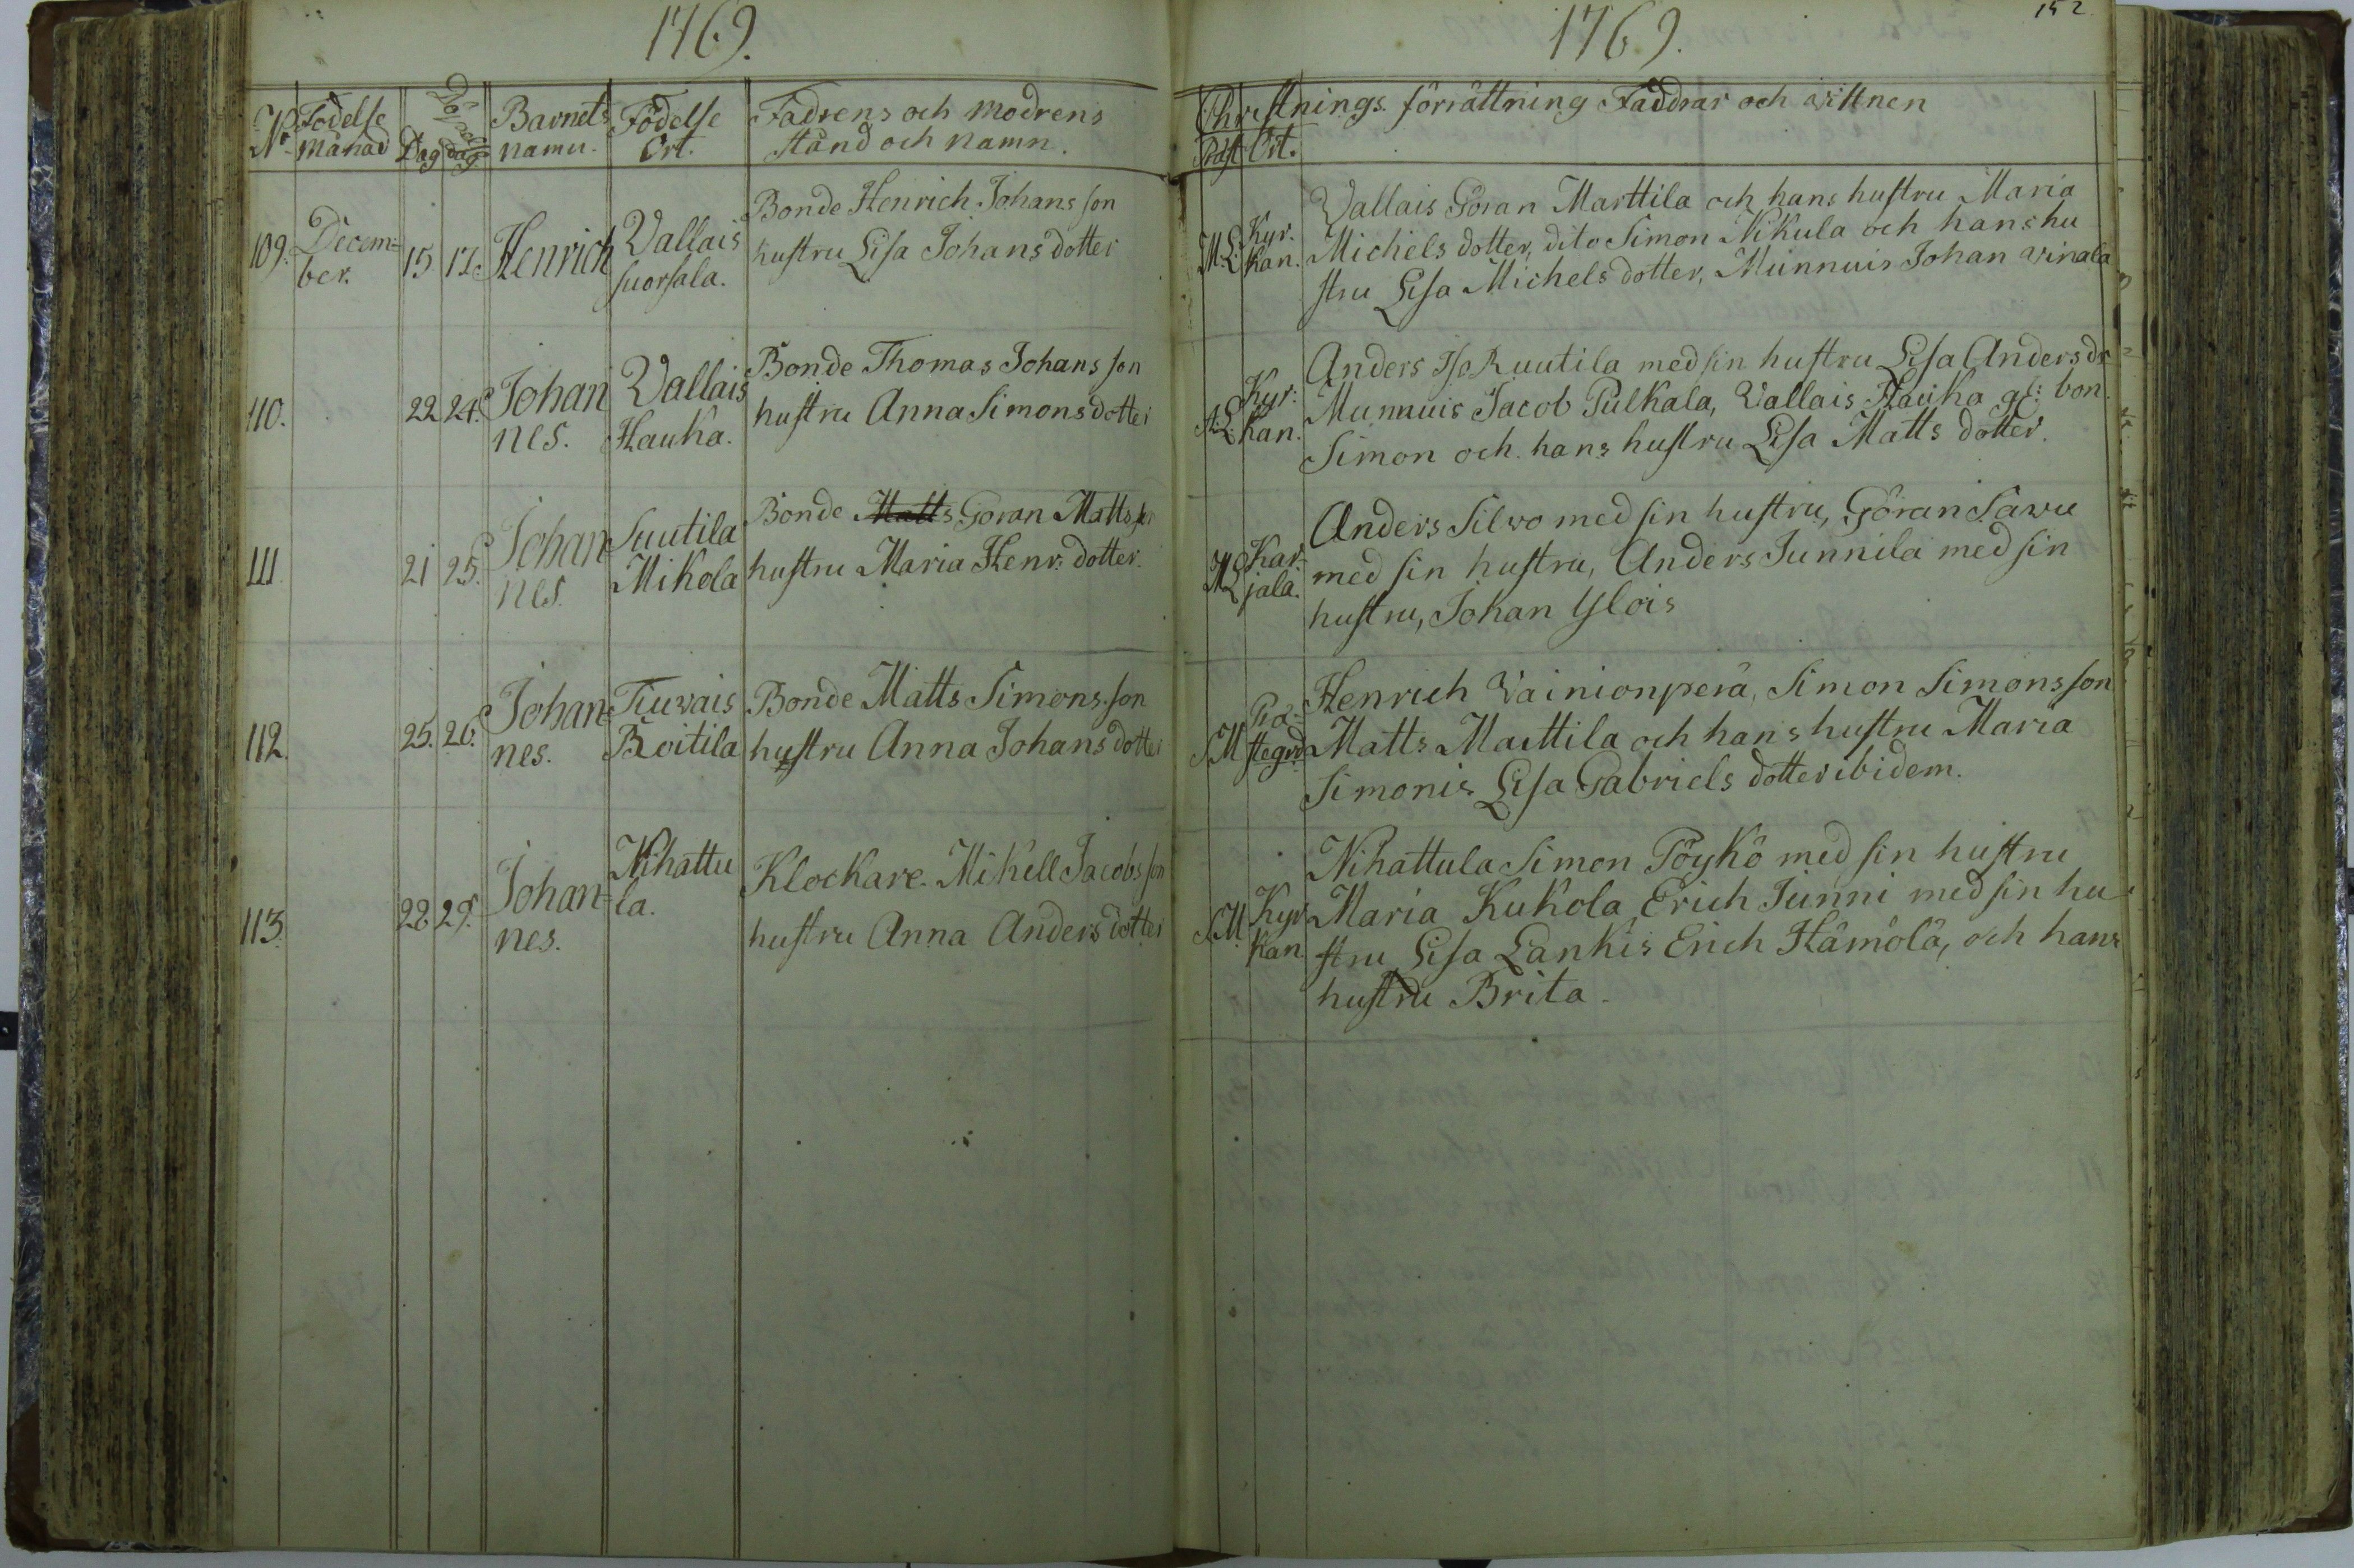 1769.
No Födelse månad Dag Döpelse dag Barnets namn. Födelse Ort. Fadrens och modrens stånd och namn.
109. Decem= ber. 15 17. Henrich Vallais suorsala. Bonde Henrich Johans son
hustru Lisa Johans dotter
110. 22 24. Johan nes. Vallais Hauka. Bonde Thomas Johans son
hustru Anna Simons dotter
111 21 25. Johan nes. Suutila Mikola Bonde Matts Göran Matts son
hustru Maria Henr: dotter.
112. 25. 26. Johan= nes. Tiuwais Roitila Bonde Matts Simons son
hustru Anna Johans dotter
113. 28 29. Johan= nes. Nihattu la. Klockare Mikell Jacobs son
hustru Anna Anders dotter
1769.
152
Christnings förrättning Faddrar och wittnen
Präst Ort.
M.L. Kyr. kan. Vallais Göran Marttila och hans hustru Maria
Michels dotter, dito Simon Nikula och hans hu
stru Lisa Michels dotter, Munnuis Johan winala
Kyr: kan. Anders Iso Ruutila med sin hustru Lisa Anders dr
Munnuis Jacob Pulkala, Vallais Hauka gl: bon.
Simon och hans hustru Lisa Matts dotter.
ML Kar= jala. Anders Silvo med sin hustru, Göran Sawu
med sin hustru, Anders Junnila med sin
hustru, Johan Ylois
SM Prä= stegrd Henrich Vainionperä, Simon Simons son
Matts Marttila och hans hustru Maria
Simonis Lisa Gabriels dotter ibidem.
SM. Kyr kan Nihattula Simon Pöykö med sin hustru
Maria Kukola Erich Junni med sin hu
stru Lisa Lankis Erich Hämölä, och hans
hustru Brita.